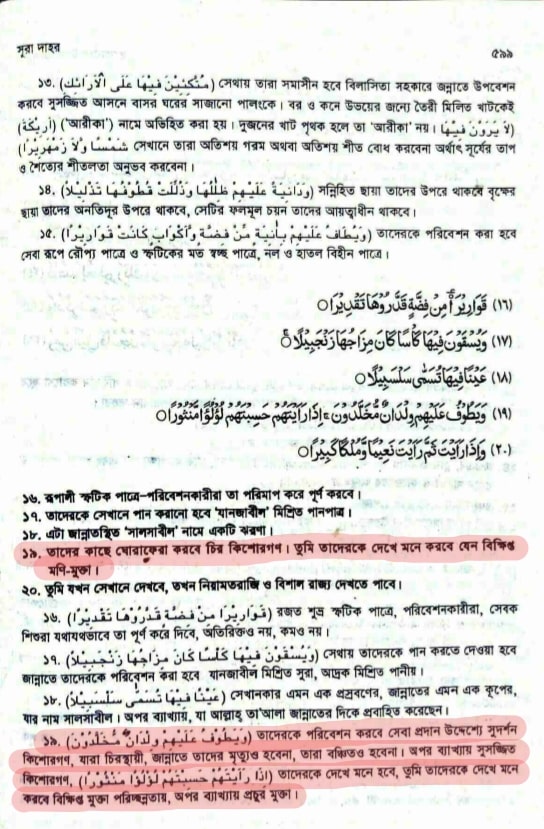 সূরা দাহর
৫৯৯
১৩. (مُتَّكِئِيْنَ فِيْهَا عَلَى الْأَرَائِكِ) সেথায় তারা সমাসীন হবে বিলাসিতা সহকারে জন্নাতে উপবেশন
করবে সুসজ্জিত আসনে বাসর ঘরের সাজানো পালংকে। বর ও কনে উভয়ের জন্যে তৈরী মিলিত খাটকেই
(أَرِيْكَةٌ) ('আরীকা') নামে অভিহিত করা হয়। দুজনের খাট পৃথক হলে তা 'আরীকা' নয়। (لَا يَرَوْنَ فِيْهَا
شَمْسًا وَلَا زَمْهَرِيْرًا) সেখানে তারা অতিশয় গরম অথবা অতিশয় শীত বোধ করবেনা অর্থাৎ সূর্যের তাপ
ও শৈত্যের শীতলতা অনুভব করবেনা।
১৪. (وَدَانِيَةً عَلَيْهِمْ ظِلَالُهَا وَذُلِّلَتْ قُطُوْفُهَا تَذْلِيْلًا) সন্নিহিত ছায়া তাদের উপরে থাকবে বৃক্ষের
ছায়া তাদের অনতিদূর উপরে থাকবে, সেটির ফলমূল চয়ন তাদের আয়ত্বাধীন থাকবে।
১৫. (وَيُطَافُ عَلَيْهِمْ بِآنِيَةٍ مِّنْ فِضَّةٍ وَّأَكْوَابٍ كَانَتْ قَوَارِيْرَا) তাদেরকে পরিবেশন করা হবে
সেবা রূপে রৌপ্য পাত্রে ও স্ফটিকের মত স্বচ্ছ পাত্রে, নল ও হাতল বিহীন পাত্রে।
(১৬) قَوَارِيْرَا۟ مِنْ فِضَّةٍ قَدَّرُوْهَا تَقْدِيْرًا ○
(১৭) وَيُسْقَوْنَ فِيْهَا كَأْسًا كَانَ مِزَاجُهَا زَنْجَبِيْلًا ○
(১৮) عَيْنًا فِيْهَا تُسَمّٰى سَلْسَبِيْلًا ○
(১৯) وَيَطُوْفُ عَلَيْهِمْ وِلْدَانٌ مُّخَلَّدُوْنَ ۚ اِذَا رَاَيْتَهُمْ حَسِبْتَهُمْ لُؤْلُؤًا مَّنْثُوْرًا ○
(২০) وَاِذَا رَاَيْتَ ثَمَّ رَاَيْتَ نَعِيْمًا وَّمُلْكًا كَبِيْرًا ○
১৬. রূপালী স্ফটিক পাত্রে-পরিবেশনকারীরা তা পরিমাপ করে পূর্ণ করবে।
১৭. তাদেরকে সেখানে পান করানো হবে 'যানজাবীল' মিশ্রিত পানপাত্র।
১৮. এটা জান্নাতস্থিত 'সালসাবীল' নামে একটি ঝরণা।
১৯. তাদের কাছে ঘোরাফেরা করবে চির কিশোরগণ। তুমি তাদেরকে দেখে মনে করবে যেন বিক্ষিপ্ত
মণি-মুক্তা।
২০. তুমি যখন সেখানে দেখবে, তখন নিয়ামতরাজি ও বিশাল রাজ্য দেখতে পাবে।
১৬. (قَوَارِيْرَا مِنْ فِضَّةٍ قَدَّرُوْهَا تَقْدِيْرًا) রজত শুভ্র স্ফটিক পাত্রে, পরিবেশনকারীরা, সেবক
শিশুরা যথাযথভাবে তা পূর্ণ করে দিবে, অতিরিক্তও নয়, কমও নয়।
১৭. (وَيُسْقَوْنَ فِيْهَا كَأْسًا كَانَ مِزَاجُهَا زَنْجَبِيْلًا) সেথায় তাদেরকে পান করতে দেওয়া হবে
জান্নাতে তাদেরকে পরিবেশন করা হবে যানজাবীল মিশ্রিত সুরা, আদ্রক মিশ্রিত পানীয়।
১৮. (عَيْنًا فِيْهَا تُسَمَّى سَلْسَبِيْلًا) সেখানকার এমন এক প্রস্রবণের, জান্নাতের এমন এক কূপের,
যার নাম সালসাবীল। অপর ব্যাখ্যায়, যা আল্লাহ্ তা'আলা জান্নাতের দিকে প্রবাহিত করেছেন।
১৯. (وَيَطُوْفُ عَلَيْهِمْ وِلْدَانٌ مُّخَلَّدُوْنَ) তাদেরকে পরিবেশন করবে সেবা প্রদান উদ্দেশ্যে সুদর্শন
কিশোরগণ, যারা চিরস্থায়ী, জান্নাতে তাদের মৃত্যুও হবেনা, তারা বঞ্চিতও হবেনা। অপর ব্যাখ্যায় সুসজ্জিত
কিশোরগণ, (اِذَا رَأَيْتَهُمْ حَسِبْتَهُمْ لُؤْلُؤًا مَنْثُوْرًا) তাদেরকে দেখে মনে হবে, তুমি তাদেরকে দেখে মনে
করবে বিক্ষিপ্ত মুক্তা পরিচ্ছন্নতায়, অপর ব্যাখ্যায় প্রচুর মুক্তা।